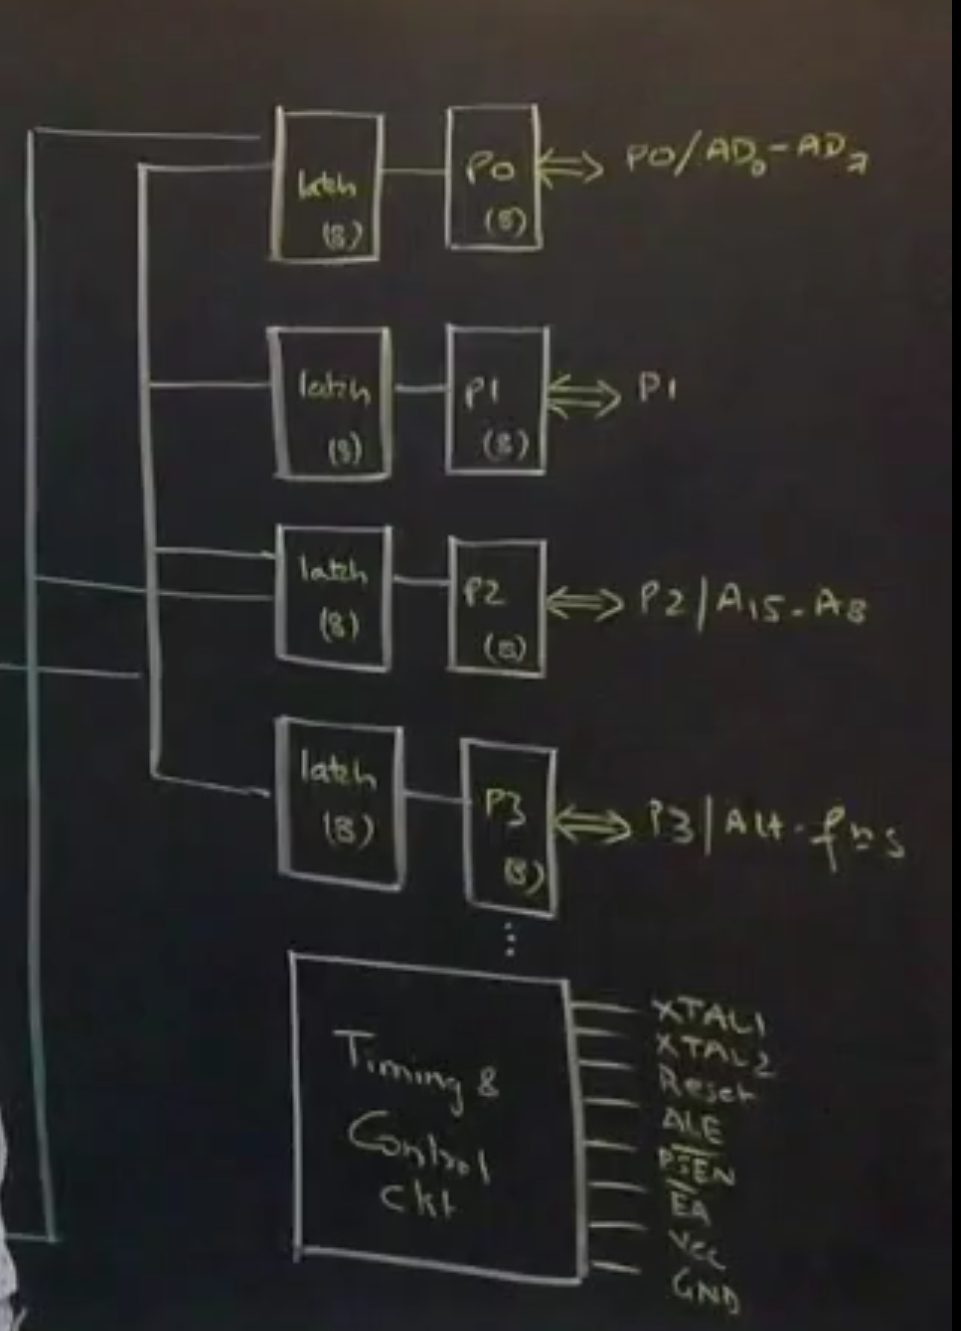 latch
(8)
P0
(8)
P0/AD0-AD7
latch
(8)
P1
(8)
P1
latch
(8)
P2
(8)
P2/A15-A8
latch
(8)
P3
(8)
P3/Alt.fns
⋮
Timing &
Control
Ckt
XTAL1
XTAL2
Reset
ALE
P̅S̅E̅N̅
E̅A̅
Vcc
GND